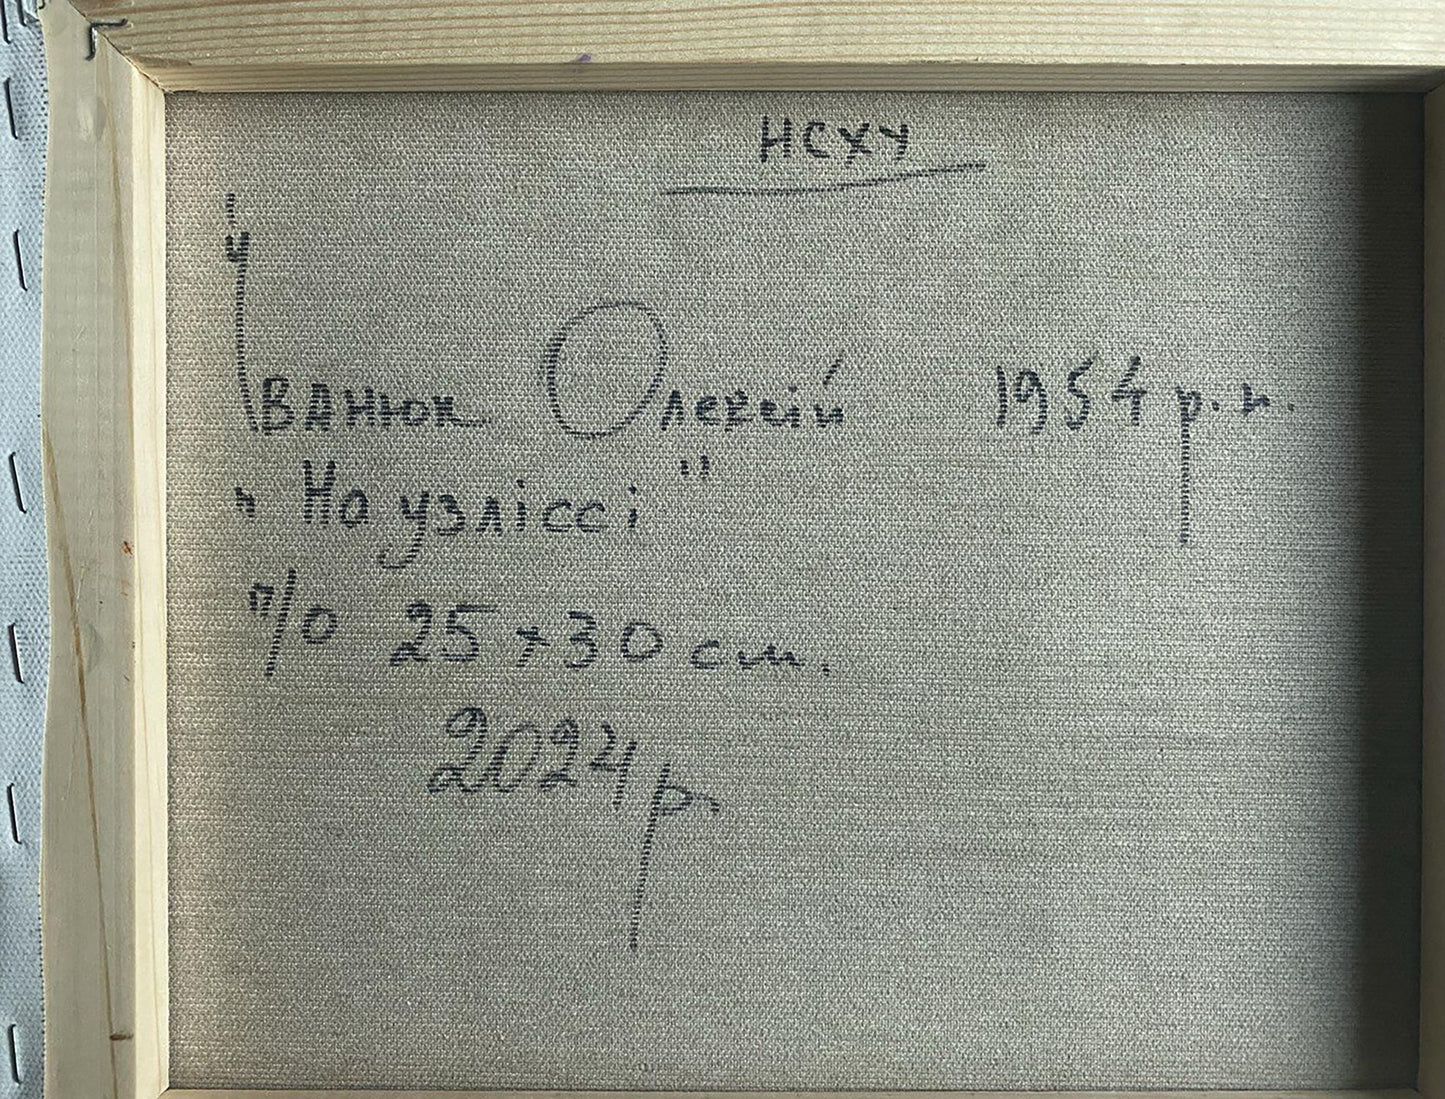 НСХУ
Іванюк Олексій 1954 р.н.
"На узліссі"
п/о 25×30 см.
2024р.